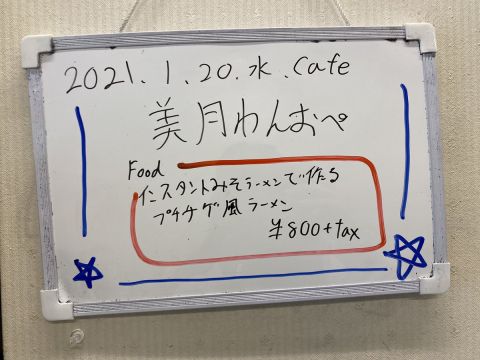 2021.1.20.水.Cafe
美月わんおぺ
Food
インスタントみそラーメンで作る
プチチゲ風ラーメン
¥800+tax